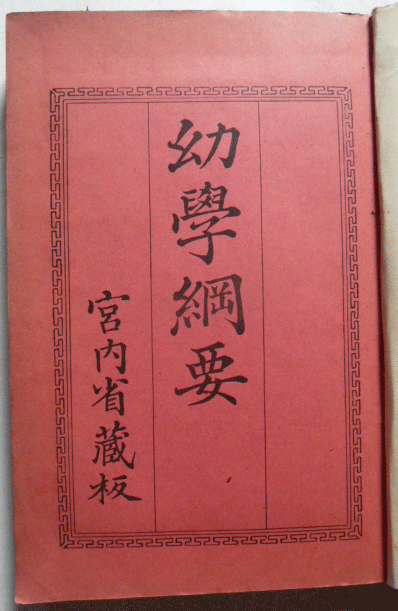 幼學綱要
宮内省藏板